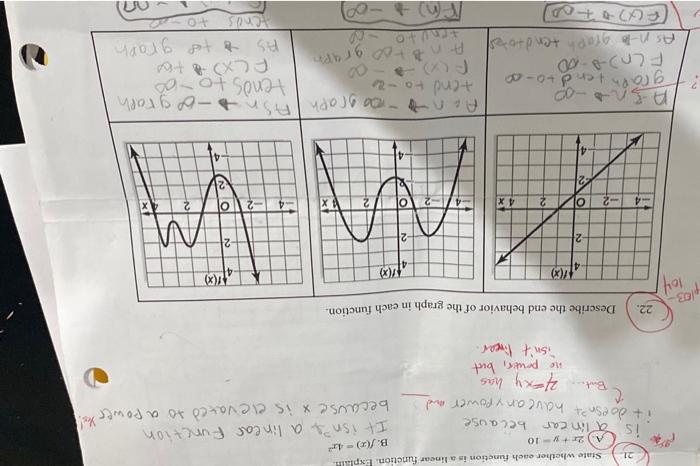 21. State whether each function is a linear function. Explain.
A. 2x + y = 10
B. f(x) = 4x²
is a linear because
it doesn't have any power
It isn't a linear function
because x is elevated to a power
Yes!
But... 4=xy has
no power, but
isn't linear.
p103-
104
22. Describe the end behavior of the graph in each function.
4 f(x)
2
-4 -2 O 2 4 x
-2
-4
4 f(x)
2
-4 -2 O 2 4 x
-2
-4
4 f(x)
2
-4 -2 O 2 4 x
-2
-4
?
As n → -∞
graph tend to -∞
F(n) → -∞
As n → graph tend to ∞
F(x) → +∞
As n → -∞ graph
tend to -∞
F(x) → -∞
As n → +∞ graph
tend to -∞
F(n) → -∞
As n → -∞ graph
tends to -∞
F(x) → +∞
As → +∞ graph
tends to -∞